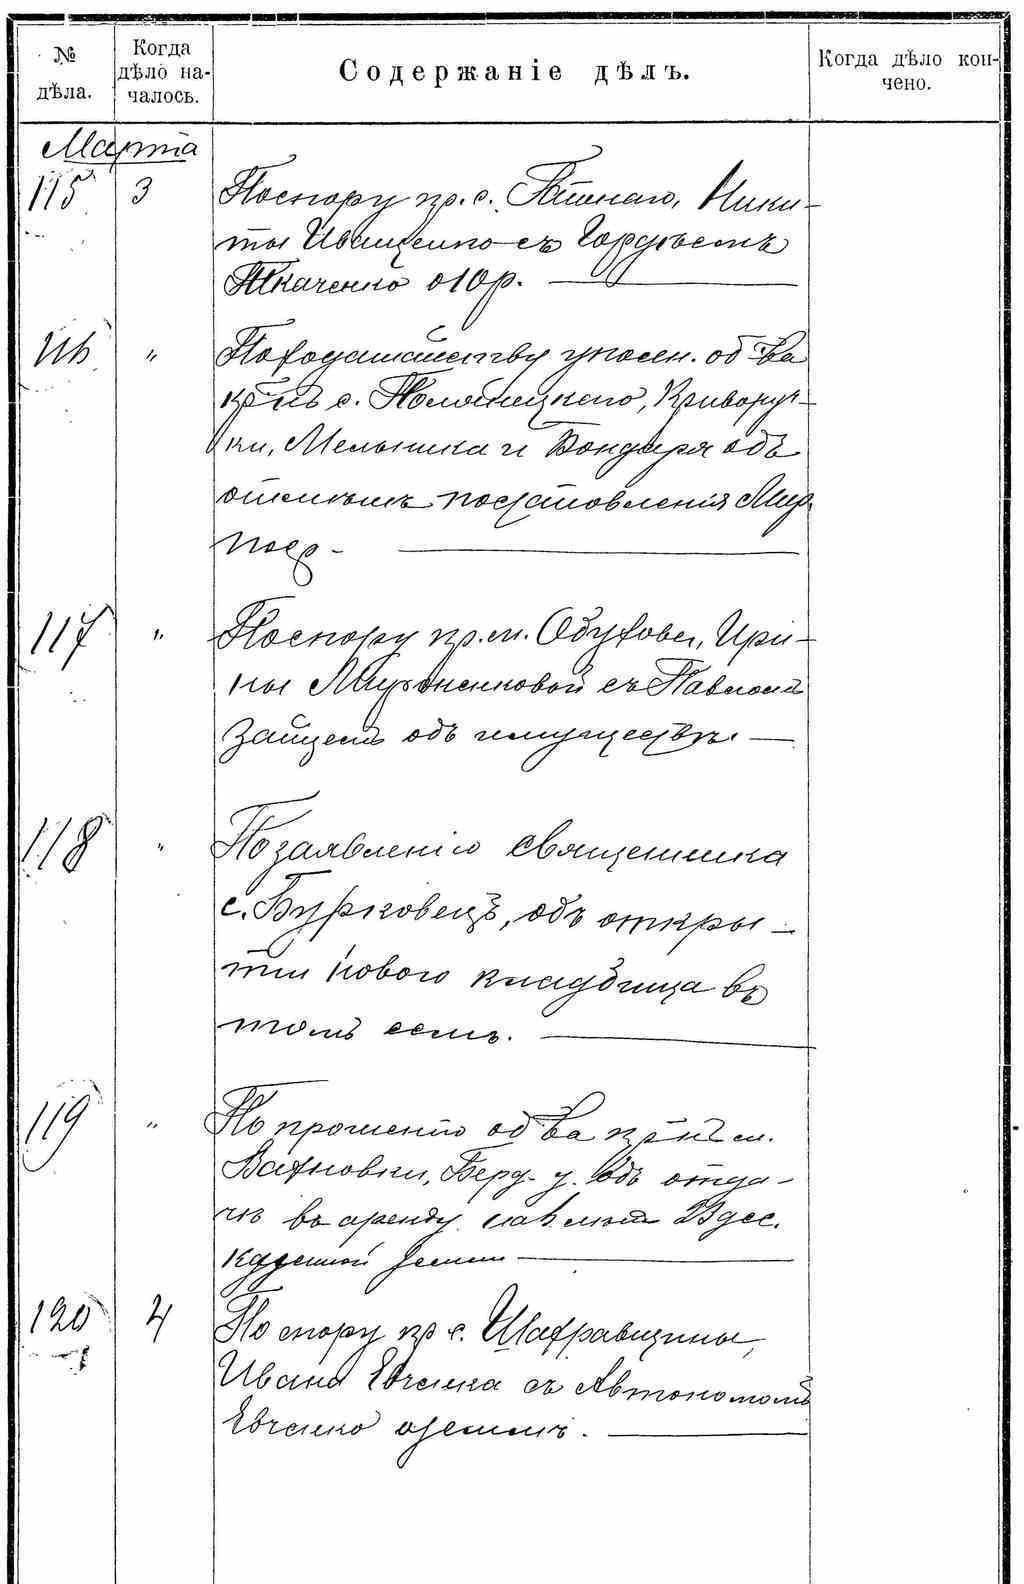 № дѣла.
Когда дѣло началось.
Содержаніе дѣлъ.
Когда дѣло кончено.
Марта
115 3 По спору кр. с. Ники-
ты Иващенко съ Гордѣемъ
Ткаченко о 10 р.
116 " По ходатайству уполн. об-ва
кр-нъ с. Кривору-
ки, Мельника и Бондаря объ
отмѣнѣ постановленія Мир.
Поср.
117 " По спору кр. м. Обухова, Ири-
ны Мироненковой съ Павломъ
Зайцемъ объ имуществѣ.
118 " По заявленію священника
с. Бурковецъ, объ откры-
тіи новаго кладбища въ
томъ селѣ.
119 " По прошенію об-ва кр-нъ м.
Вахновки, Берд. у. объ отда-
чѣ въ аренду на лѣтъ 23 дес.
земли
120 4 По спору кр. с. Шафравщины,
Ивана Евченка съ Автономомъ
Евченко о землѣ.